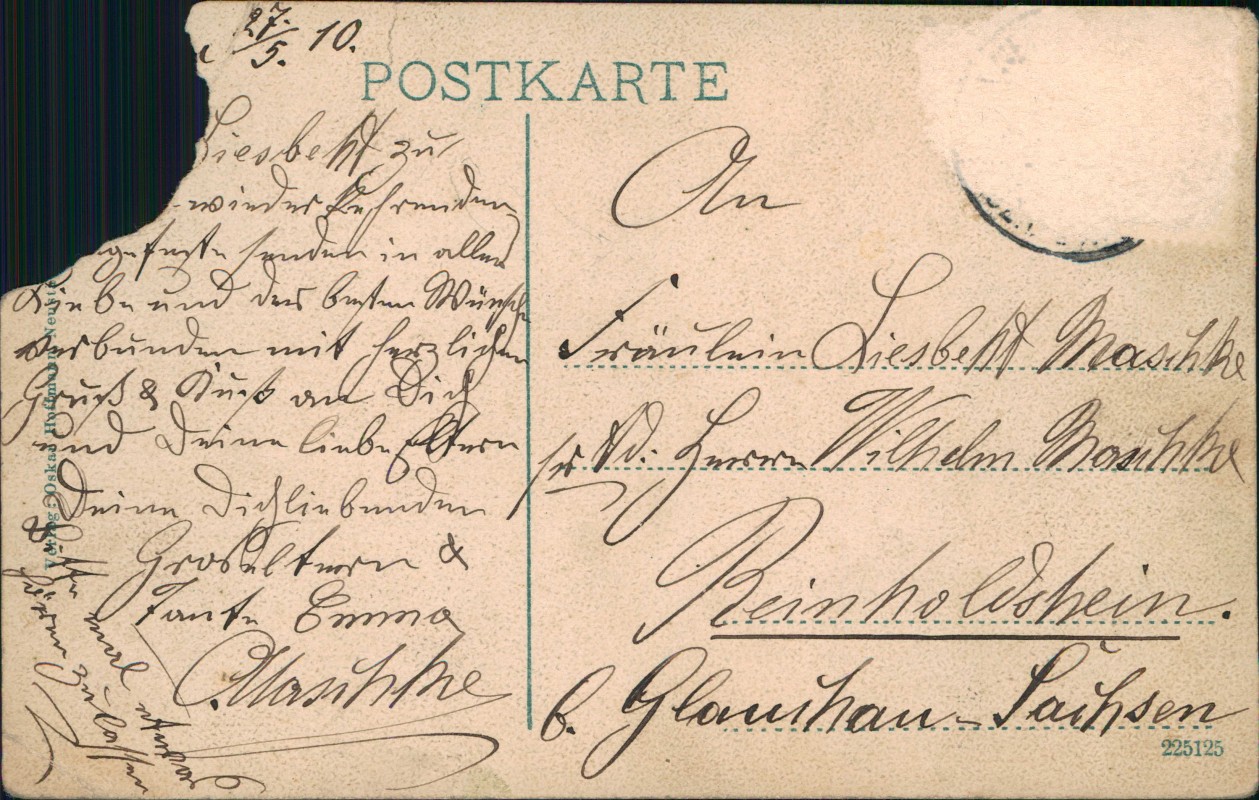 27./5. 10.
POSTKARTE
Liesbeth zu
wiederkehrenden
feste senden in aller
Liebe und des besten Wünsche
verbunden mit herzlichen
Gruß & Kuß an Dich
und Deine liebe Eltern
Deine Dichliebenden
Großeltern &
Tante Emma
Maschke
Bitte mal etwas
hören zu lassen
Verlag: Oskar Hoffmann Neust
An
Fräulein Liesbeth Maschke
pr Ad. Herrn Wilhelm Maschke
Reinholdshein.
b. Glauchau - Sachsen
225125